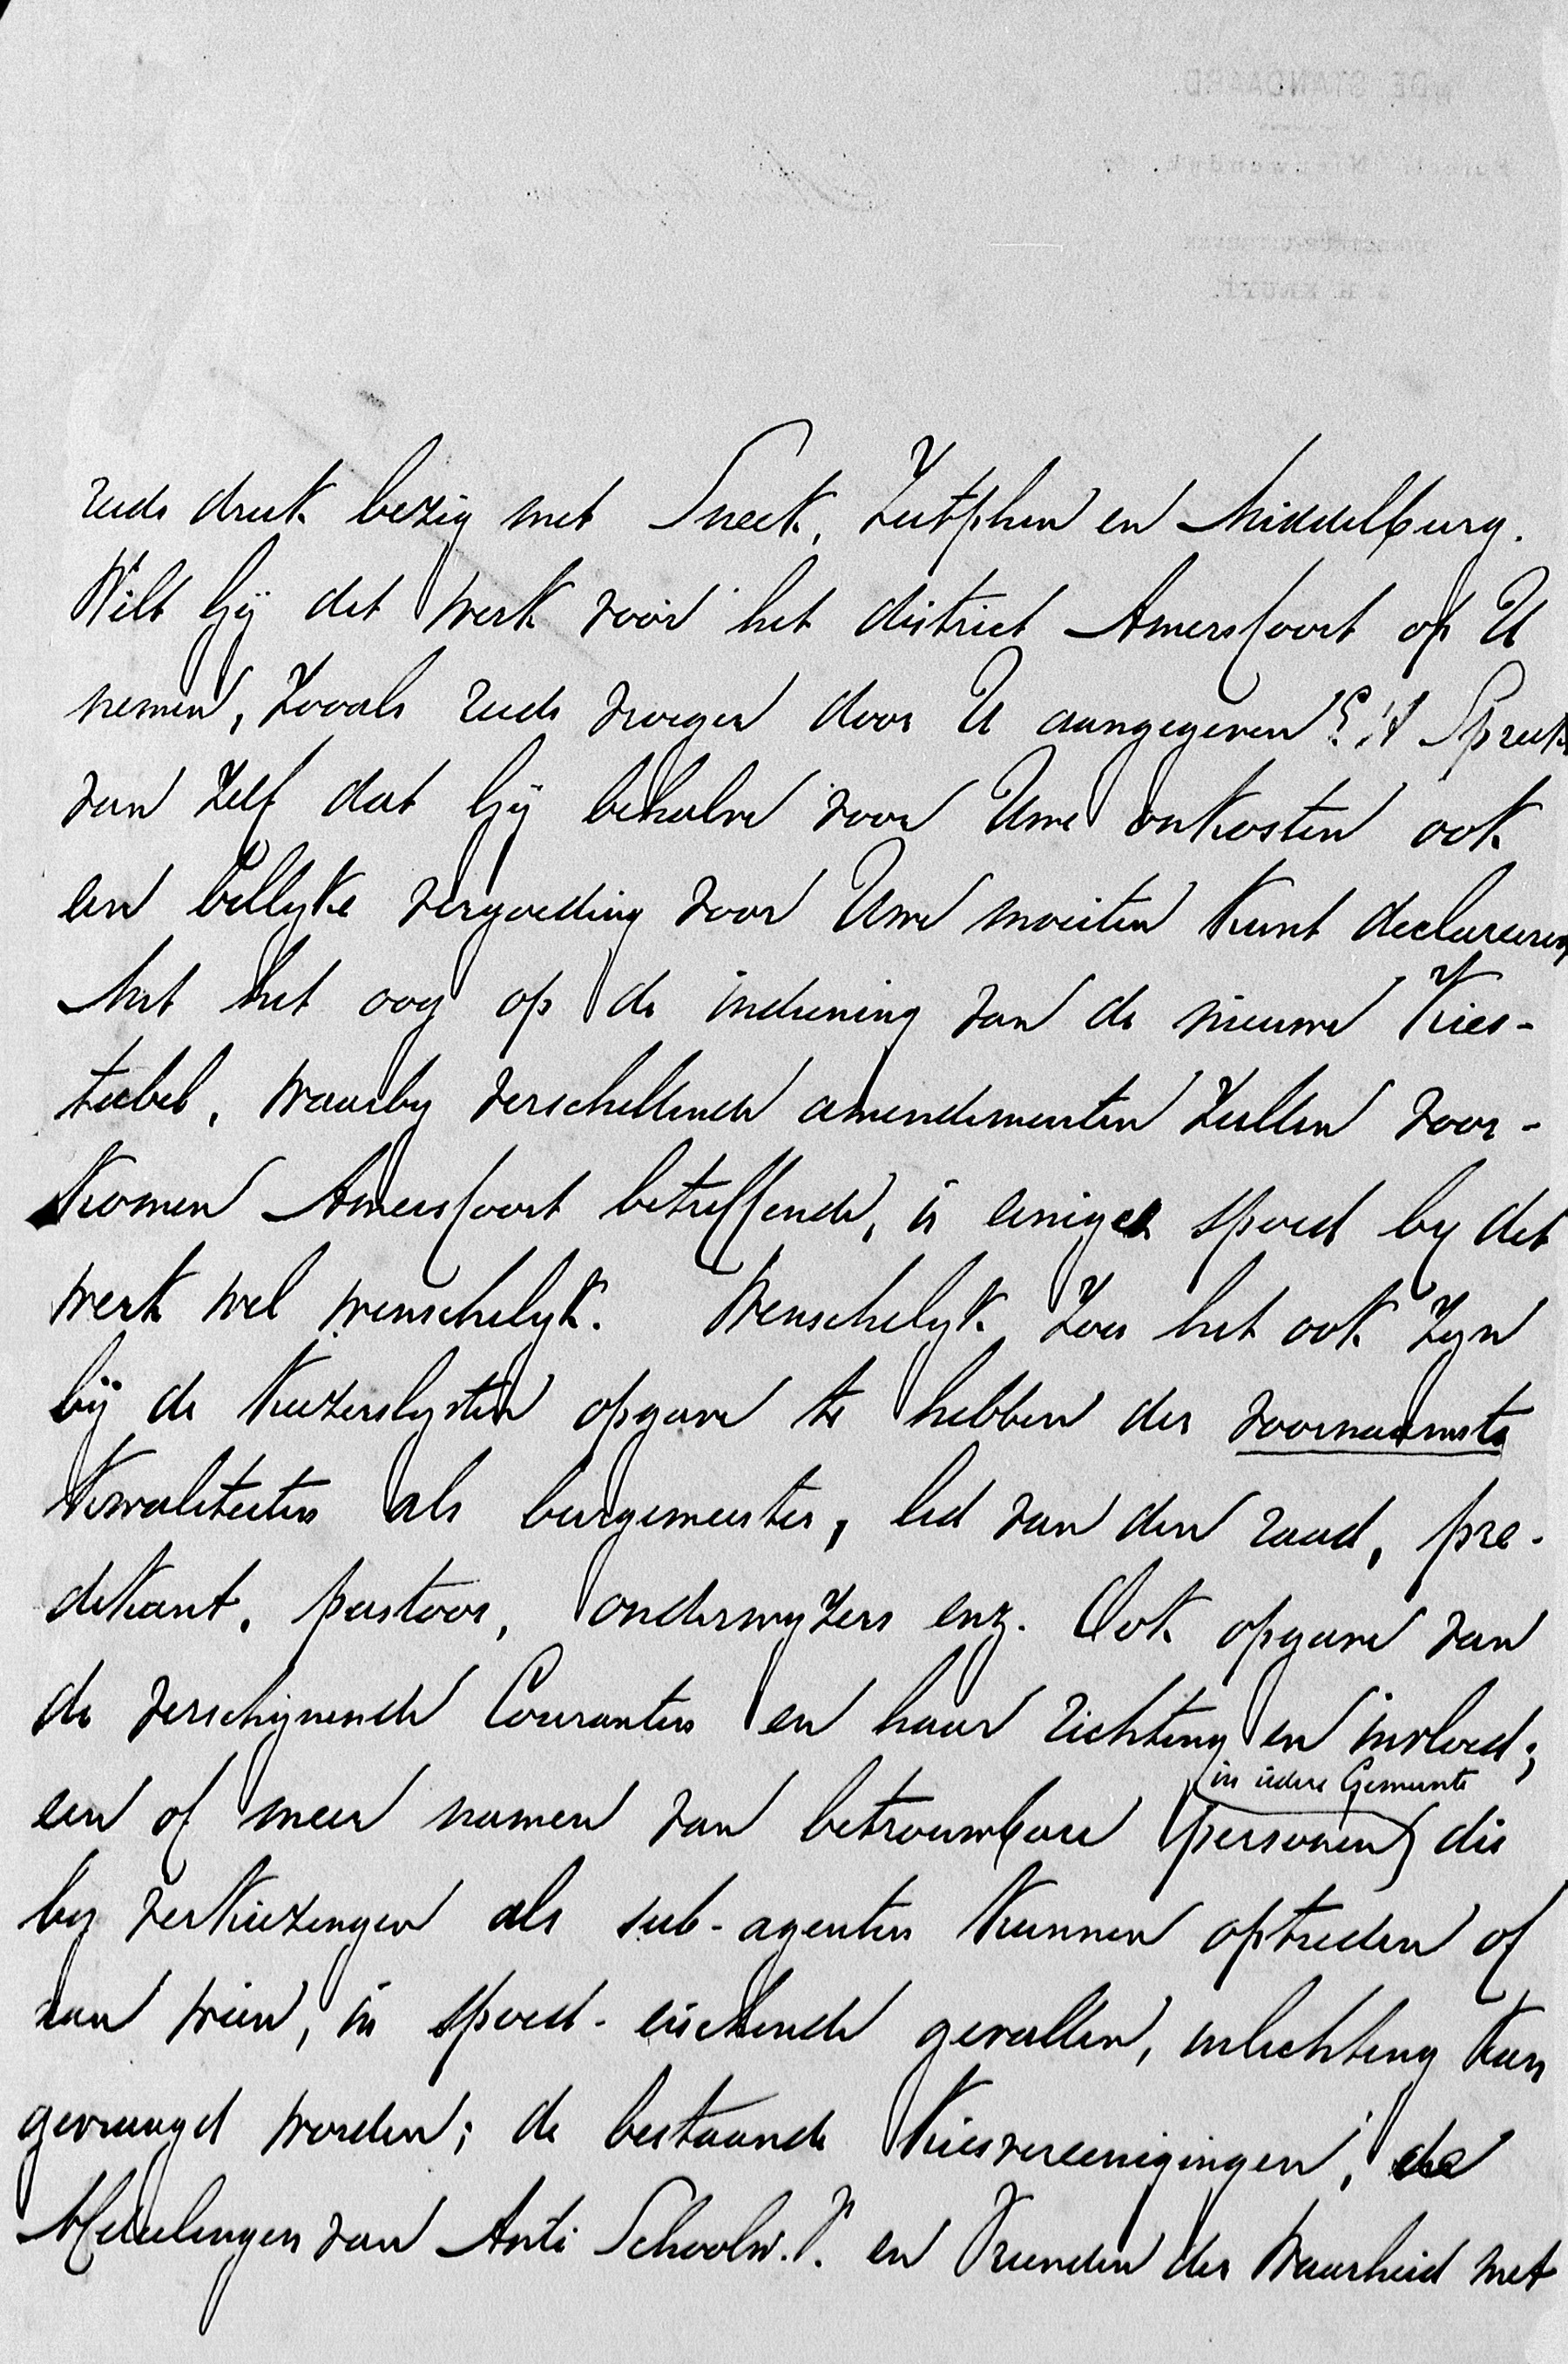 reeds druk bezig met Sneek, Zutphen en Middelburg.
Wilt Gij dit werk voor het district Amersfoort op U
nemen, zooals reeds vroeger door U aangegeven? 't Spreekt
van zelf dat Gij behalve voor Uwe onkosten ook
een billyke vergoeding voor Uwe moeiten kunt declareeren
Met het oog op de indiening van de nieuwe Kies-
tabel, waarby verschillende amendementen zullen voor-
komen Amersfoort betreffende, is eenige spoed by dit
werk wel wenschelyk. Wenschelyk zou het ook zyn
bij de kiezerslysten opgave te hebben der voornaamste
kwaliteiten als burgemeester, lid van den raad, pre-
dikant, pastoor, onderwyzers enz. Ook opgave van
de verschijnende Couranten en haar richting en invloed;
in iedere Gemeente
een of meer namen van betrouwbare personen die
by verkiezingen als sub-agenten kunnen optreden of
aan wien, in spoed-eischende gevallen, inlichting kan
gevraagd worden; de bestaande Kiesvereenigingen, de
Afdeelingen van Anti Schoolw. V. en Vrienden der Waarheid met
DE STANDAARD.